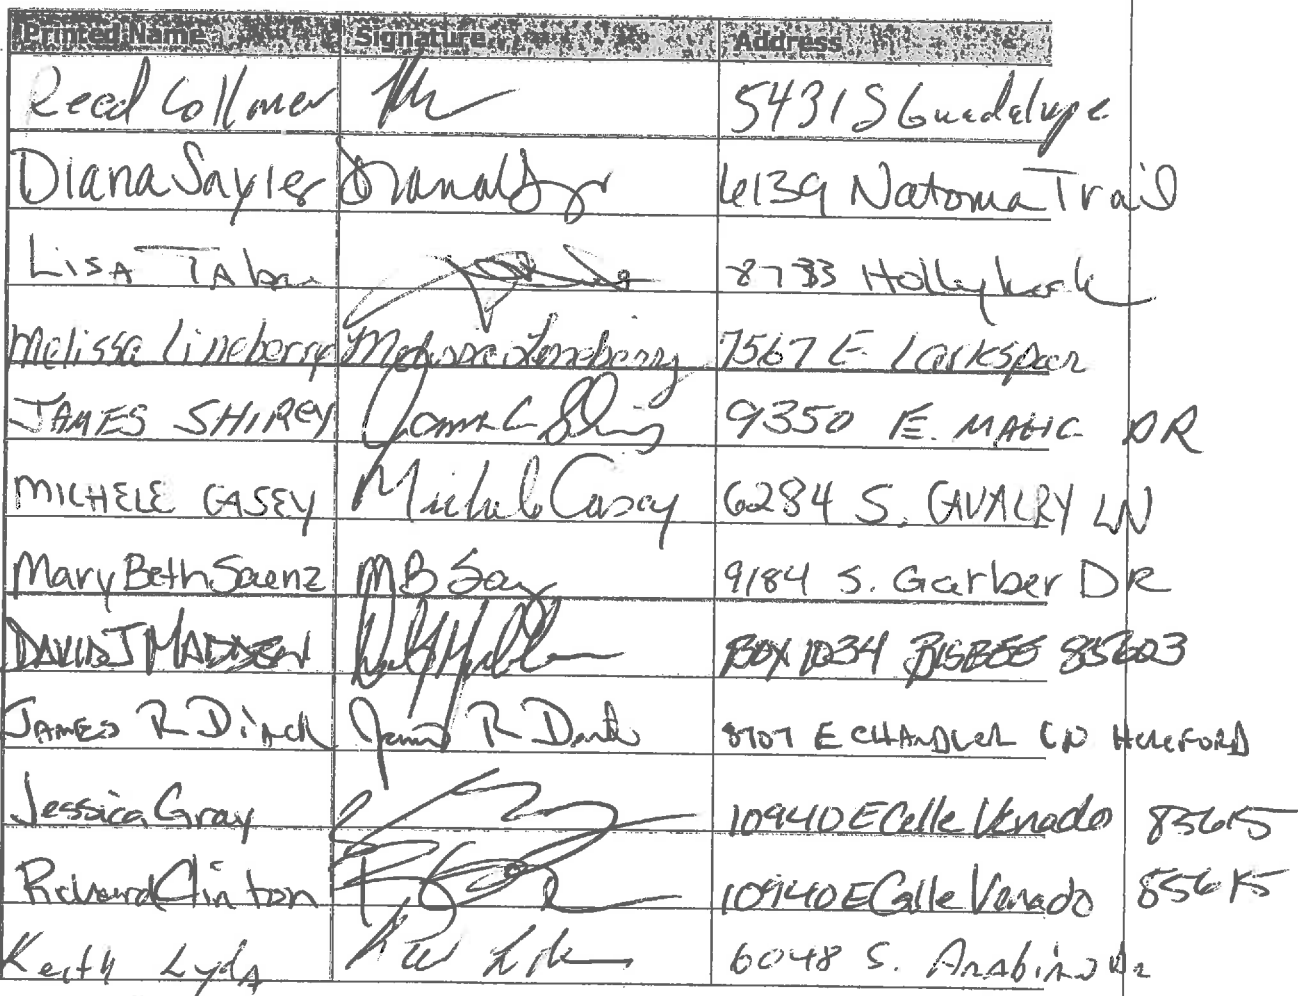 Printed Name Signature Address
Reed Collmer 5431 S Guadelupe
Diana Sayler 6139 Natoma Trail
LISA 8733 Hollyhock
Melissa Lineberry Melissa Lineberry 7567 E. Larkspur
JAMES SHIREY James C 9350 E. MAGIC DR
MICHELE CASEY Michele Casey 6284 S. CAVALRY LN
Mary Beth Saenz MB 9184 S. Garber DR
DAVID J MADDEN BOX 1034 BISBEE 85603
JAMES R James R 8707 E CHANDLER LN HEREFORD
Jessica Gray 10940 E Calle Venado 85615
Richard Clinton 10940 E Calle Venado 85615
Keith Lyda 6048 S. Arabian Dr